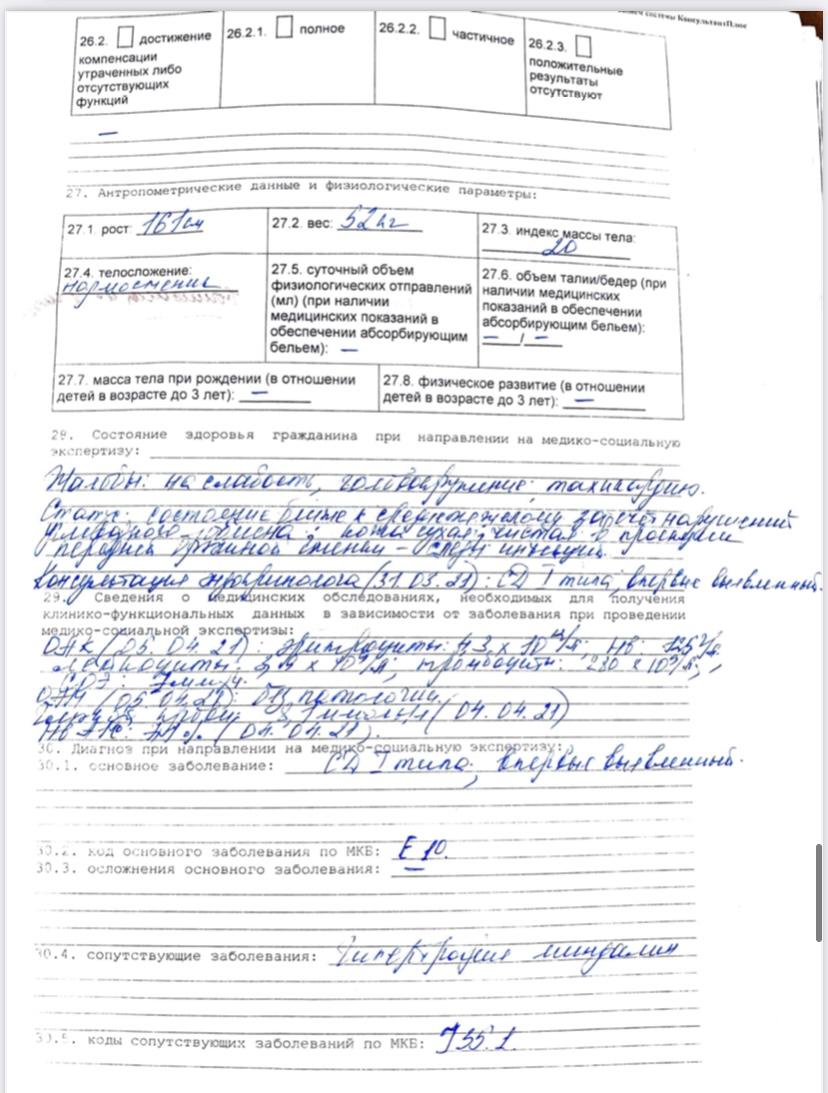 26.2. достижение компенсации утраченных либо отсутствующих функций
26.2.1. полное
26.2.2. частичное
26.2.3. положительные результаты отсутствуют
—
27. Антропометрические данные и физиологические параметры:
27.1. рост: 161 см
27.2. вес: 52 кг
27.3. индекс массы тела: 20
27.4. телосложение: нормостеник
27.5. суточный объем физиологических отправлений (мл) (при наличии медицинских показаний в обеспечении абсорбирующим бельем): —
27.6. объем талии/бедер (при наличии медицинских показаний в обеспечении абсорбирующим бельем): — / —
27.7. масса тела при рождении (в отношении детей в возрасте до 3 лет): —
27.8. физическое развитие (в отношении детей в возрасте до 3 лет): —
28. Состояние здоровья гражданина при направлении на медико-социальную
экспертизу:
Жалобы: на слабость, головокружение, тахикардию.
Статус: состояние ближе к среднетяжелому за счет нарушений
углеводного обмена; кожа сухая, чистая в проекции
передней брюшной стенки – следы инъекций.
Консультация эндокринолога (31.03.21): СД I типа, впервые выявленный.
29. Сведения о медицинских обследованиях, необходимых для получения
клинико-функциональных данных в зависимости от заболевания при проведении
медико-социальной экспертизы:
ОАК (05.04.21): эритроциты: 4,3 x 10¹²/л; HB: 125 г/л.
лейкоциты: x 10⁹/л; тромбоциты: 230 x 10⁹/л;
СОЭ: 7 мм/ч.
ОАМ (05.04.21): без патологии.
крови: ммоль/л (04.04.21)
(04.04.21).
30. Диагноз при направлении на медико-социальную экспертизу:
30.1. основное заболевание: СД I типа, впервые выявленный.
30.2. код основного заболевания по МКБ: E 10.
30.3. осложнения основного заболевания: —
30.4. сопутствующие заболевания: Гипертрофия миндалин
30.5. коды сопутствующих заболеваний по МКБ: J 35.1.